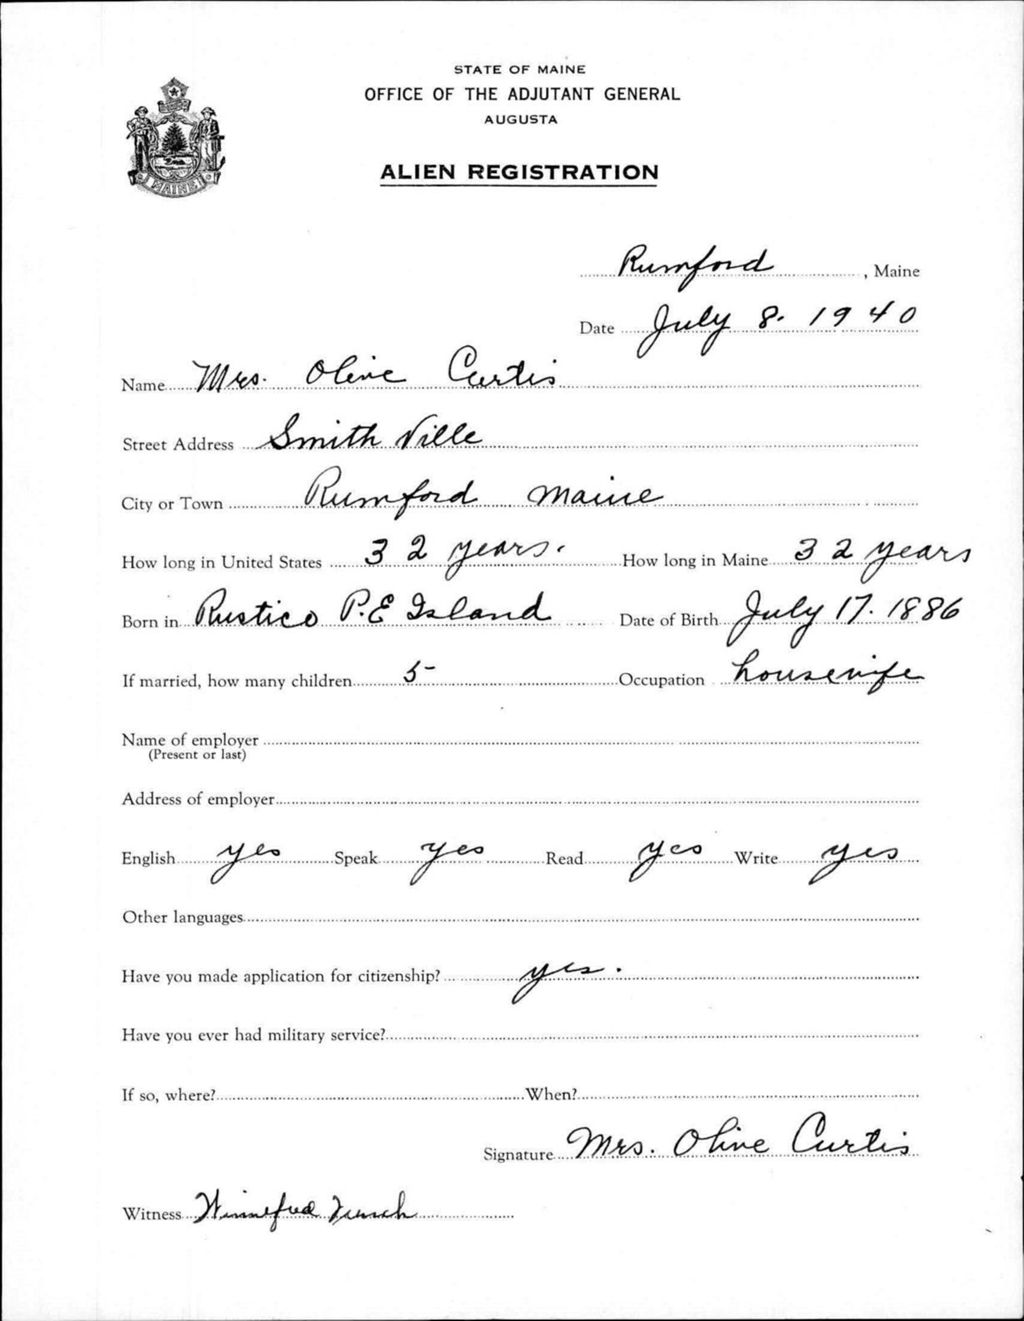 STATE OF MAINE
OFFICE OF THE ADJUTANT GENERAL
AUGUSTA
ALIEN REGISTRATION
MAINE
Rumford, Maine
Date July 8. 1940
Name Mrs. Olive Curtis
Street Address Smith Ville
City or Town Rumford Maine
How long in United States 32 years. How long in Maine 32 years
Born in Rustico P.E Island Date of Birth July 17. 1886
If married, how many children 5 Occupation housewife
Name of employer
(Present or last)
Address of employer
English yes Speak yes Read yes Write yes
Other languages
Have you made application for citizenship? yes.
Have you ever had military service?
If so, where? When?
Signature Mrs. Olive Curtis
Witness Winnefred